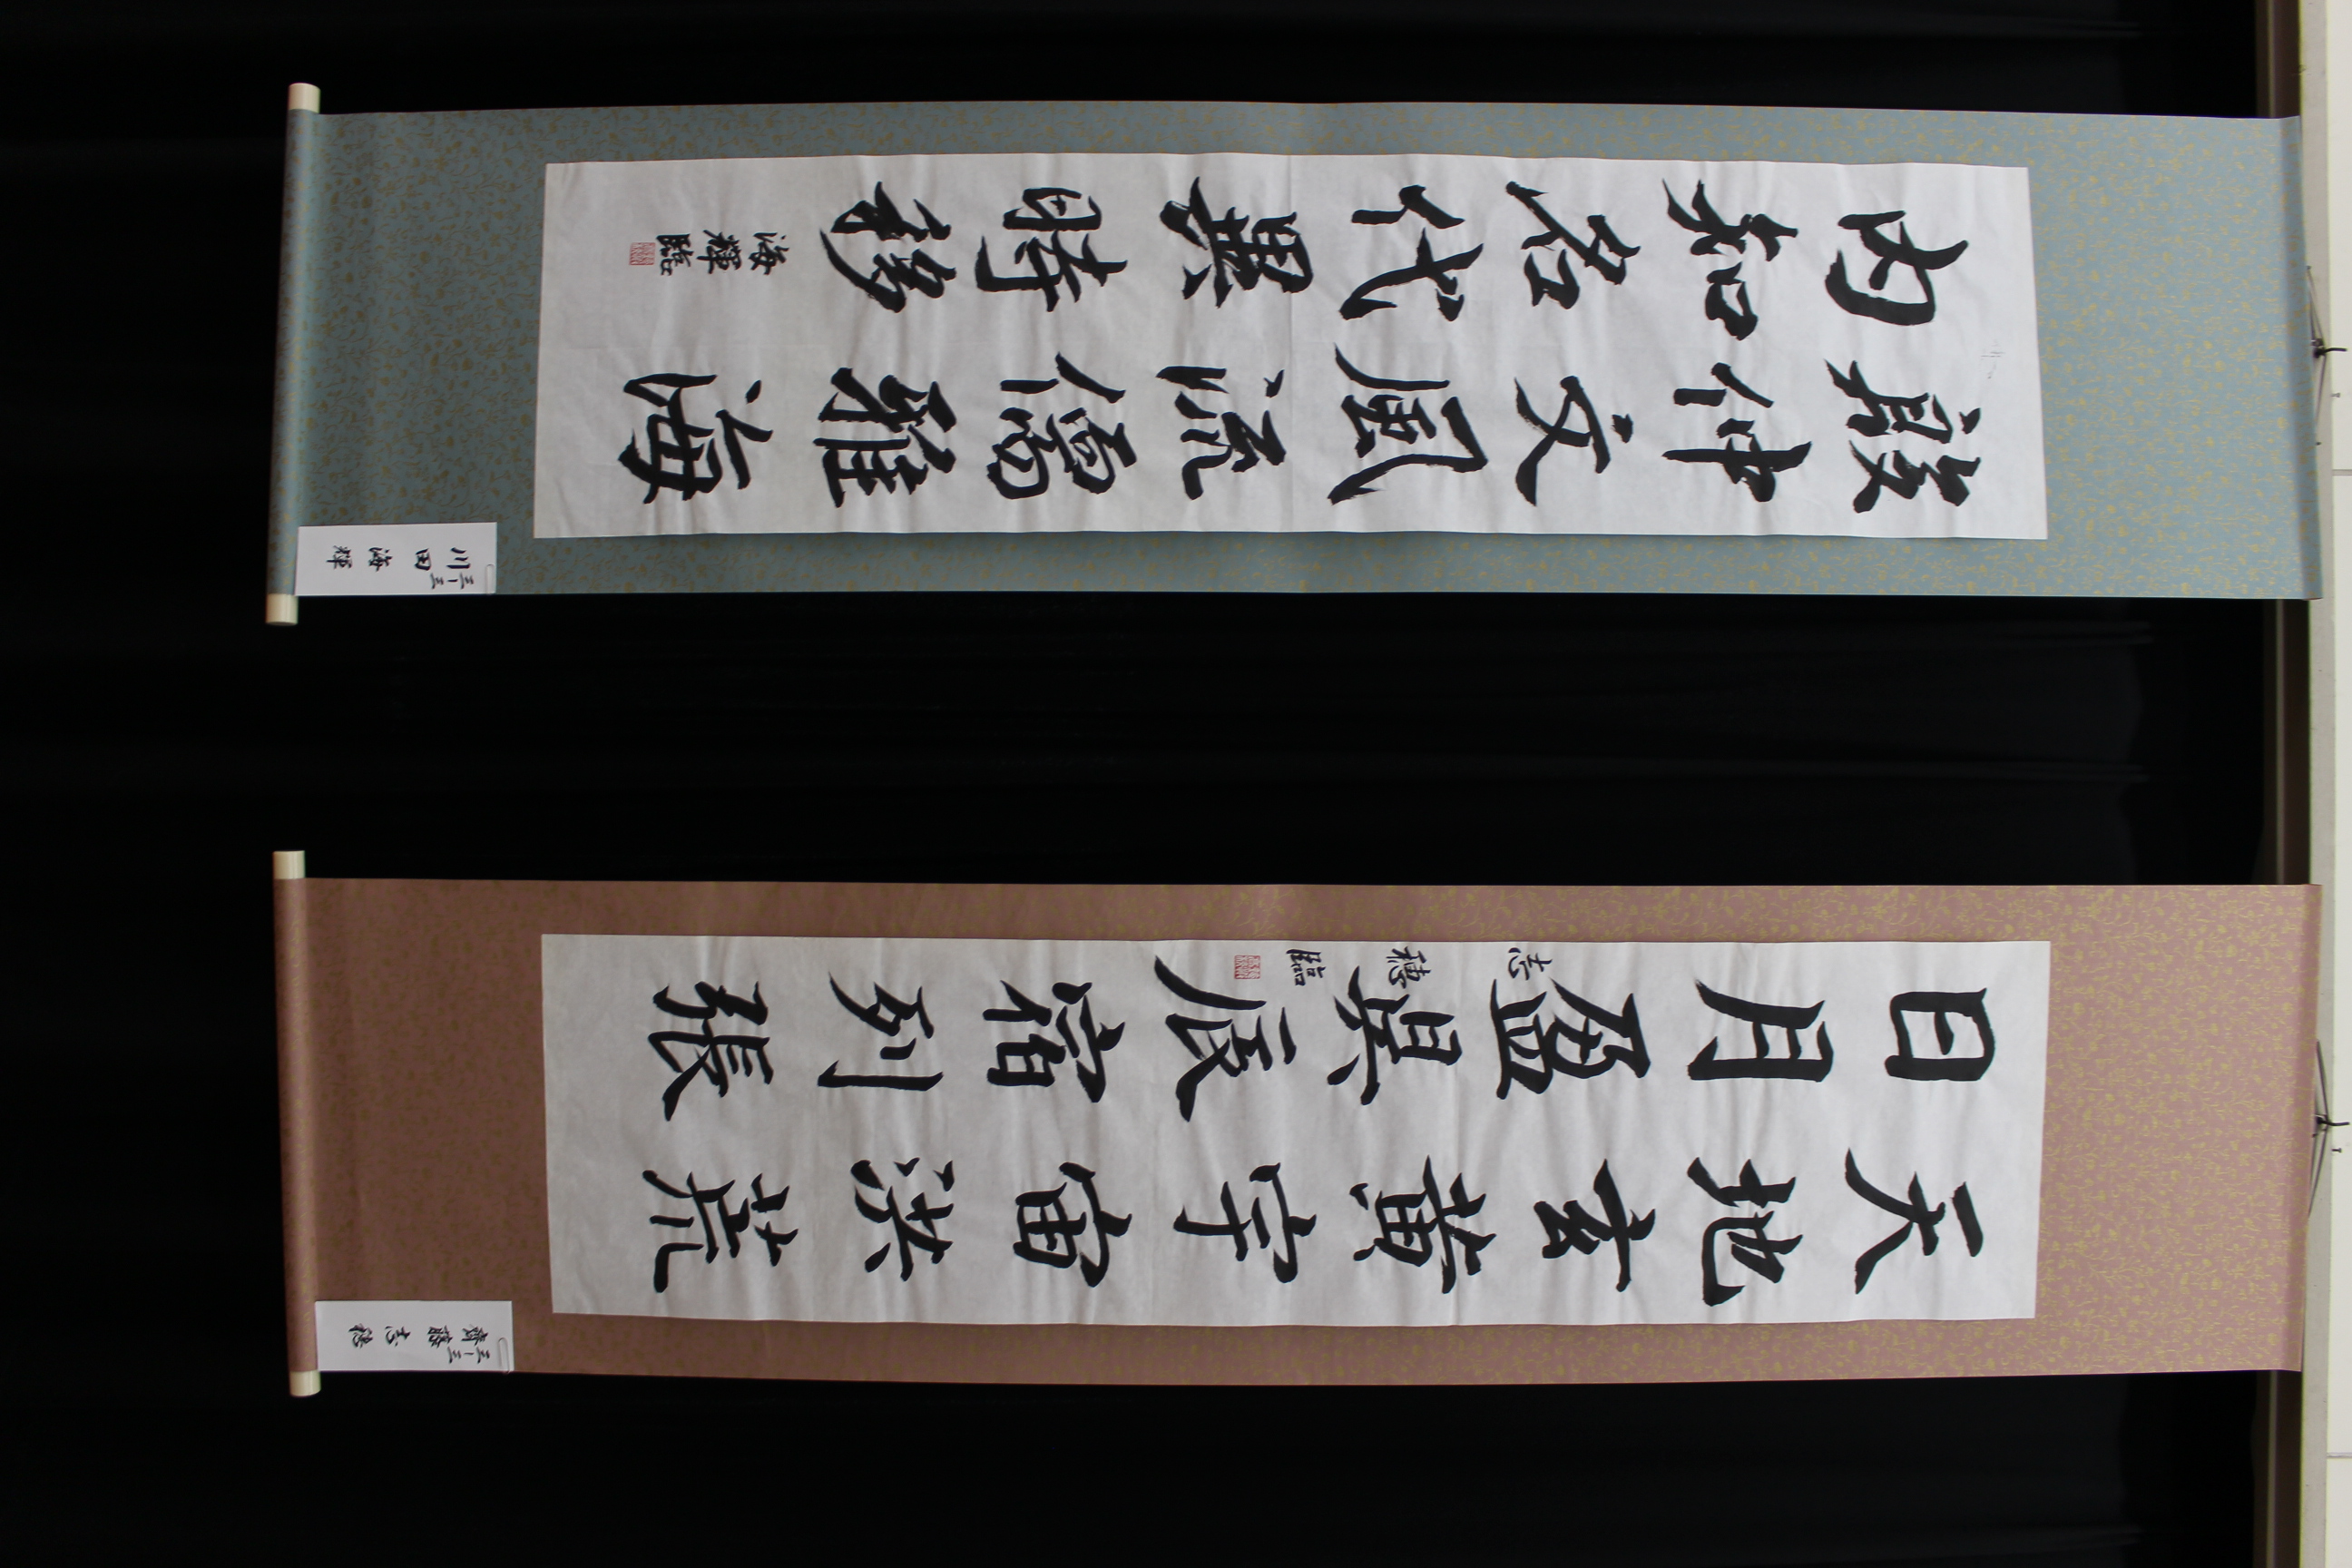 天地玄黄宇宙洪荒
日月盈昃辰宿列張
志穂臨
三ー三
齋藤志穂
殷仲文風流儒雅海
内知名代異時移
海輝臨
三ー三
川田海輝